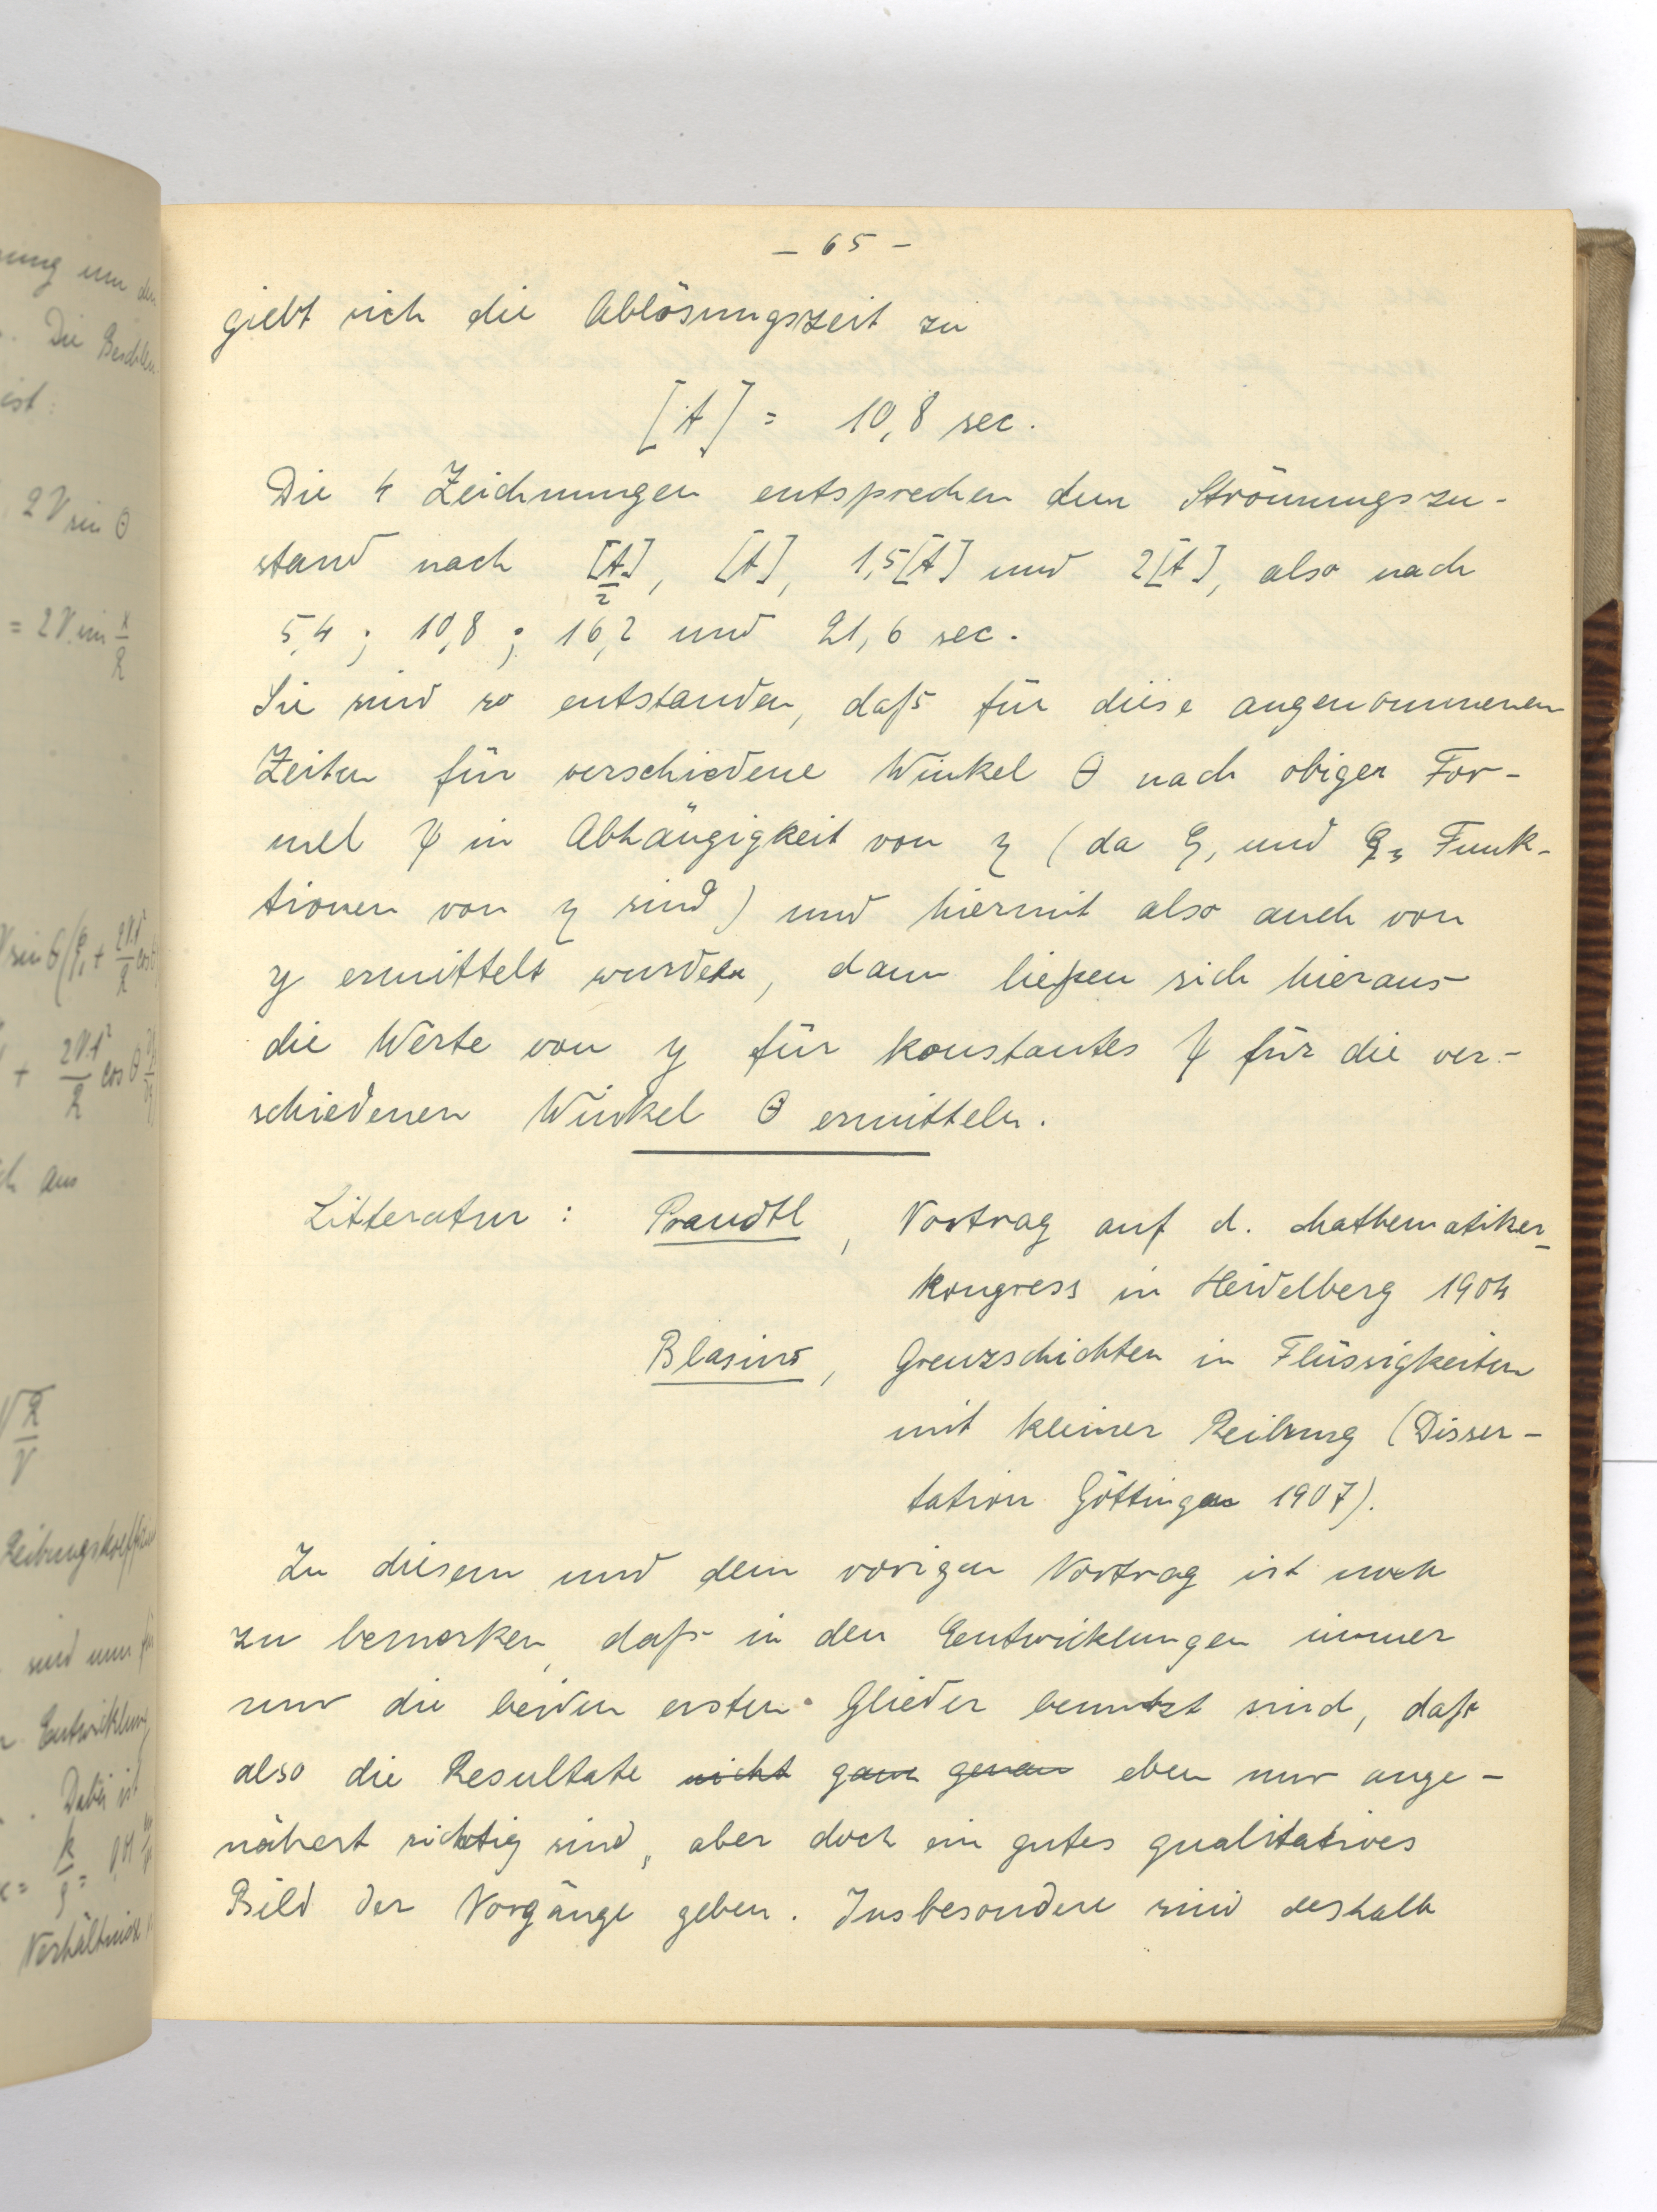 - 65 -
giebt sich die Ablösungszeit zu
[t] = 10,8 sec.
Die 4 Zeichnungen entsprechen dem Strömungszu-
stand nach [t]/2, [t], 1,5[t] und 2[t], also nach
5,4 ; 10,8 ; 16,2 und 21,6 sec.
Sie sind so entstanden, daß für diese angenommenen
Zeiten für verschiedene Winkel θ nach obiger For-
mel ψ in Abhängigkeit von η (da ζ₁ und ζ₂ Funk-
tionen von η sind) und hiermit also auch von
y ermittelt wurden, dann ließen sich hieraus
die Werte von y für konstantes ψ für die ver-
schiedenen Winkel θ ermitteln.
Litteratur : Prandtl, Vortrag auf d. Mathematiker-
kongress in Heidelberg 1904
Blasius, Grenzschichten in Flüssigkeiten
mit kleiner Reibung (Disser-
tation Göttingen 1907).
Zu diesem und dem vorigen Vortrag ist noch
zu bemerken, daß in den Entwicklungen immer
nur die beiden ersten Glieder benutzt sind, daß
also die Resultate nicht ganz genau eben nur ange-
nähert richtig sind, aber doch ein gutes qualitatives
Bild der Vorgänge geben. Insbesondere sind deshalb